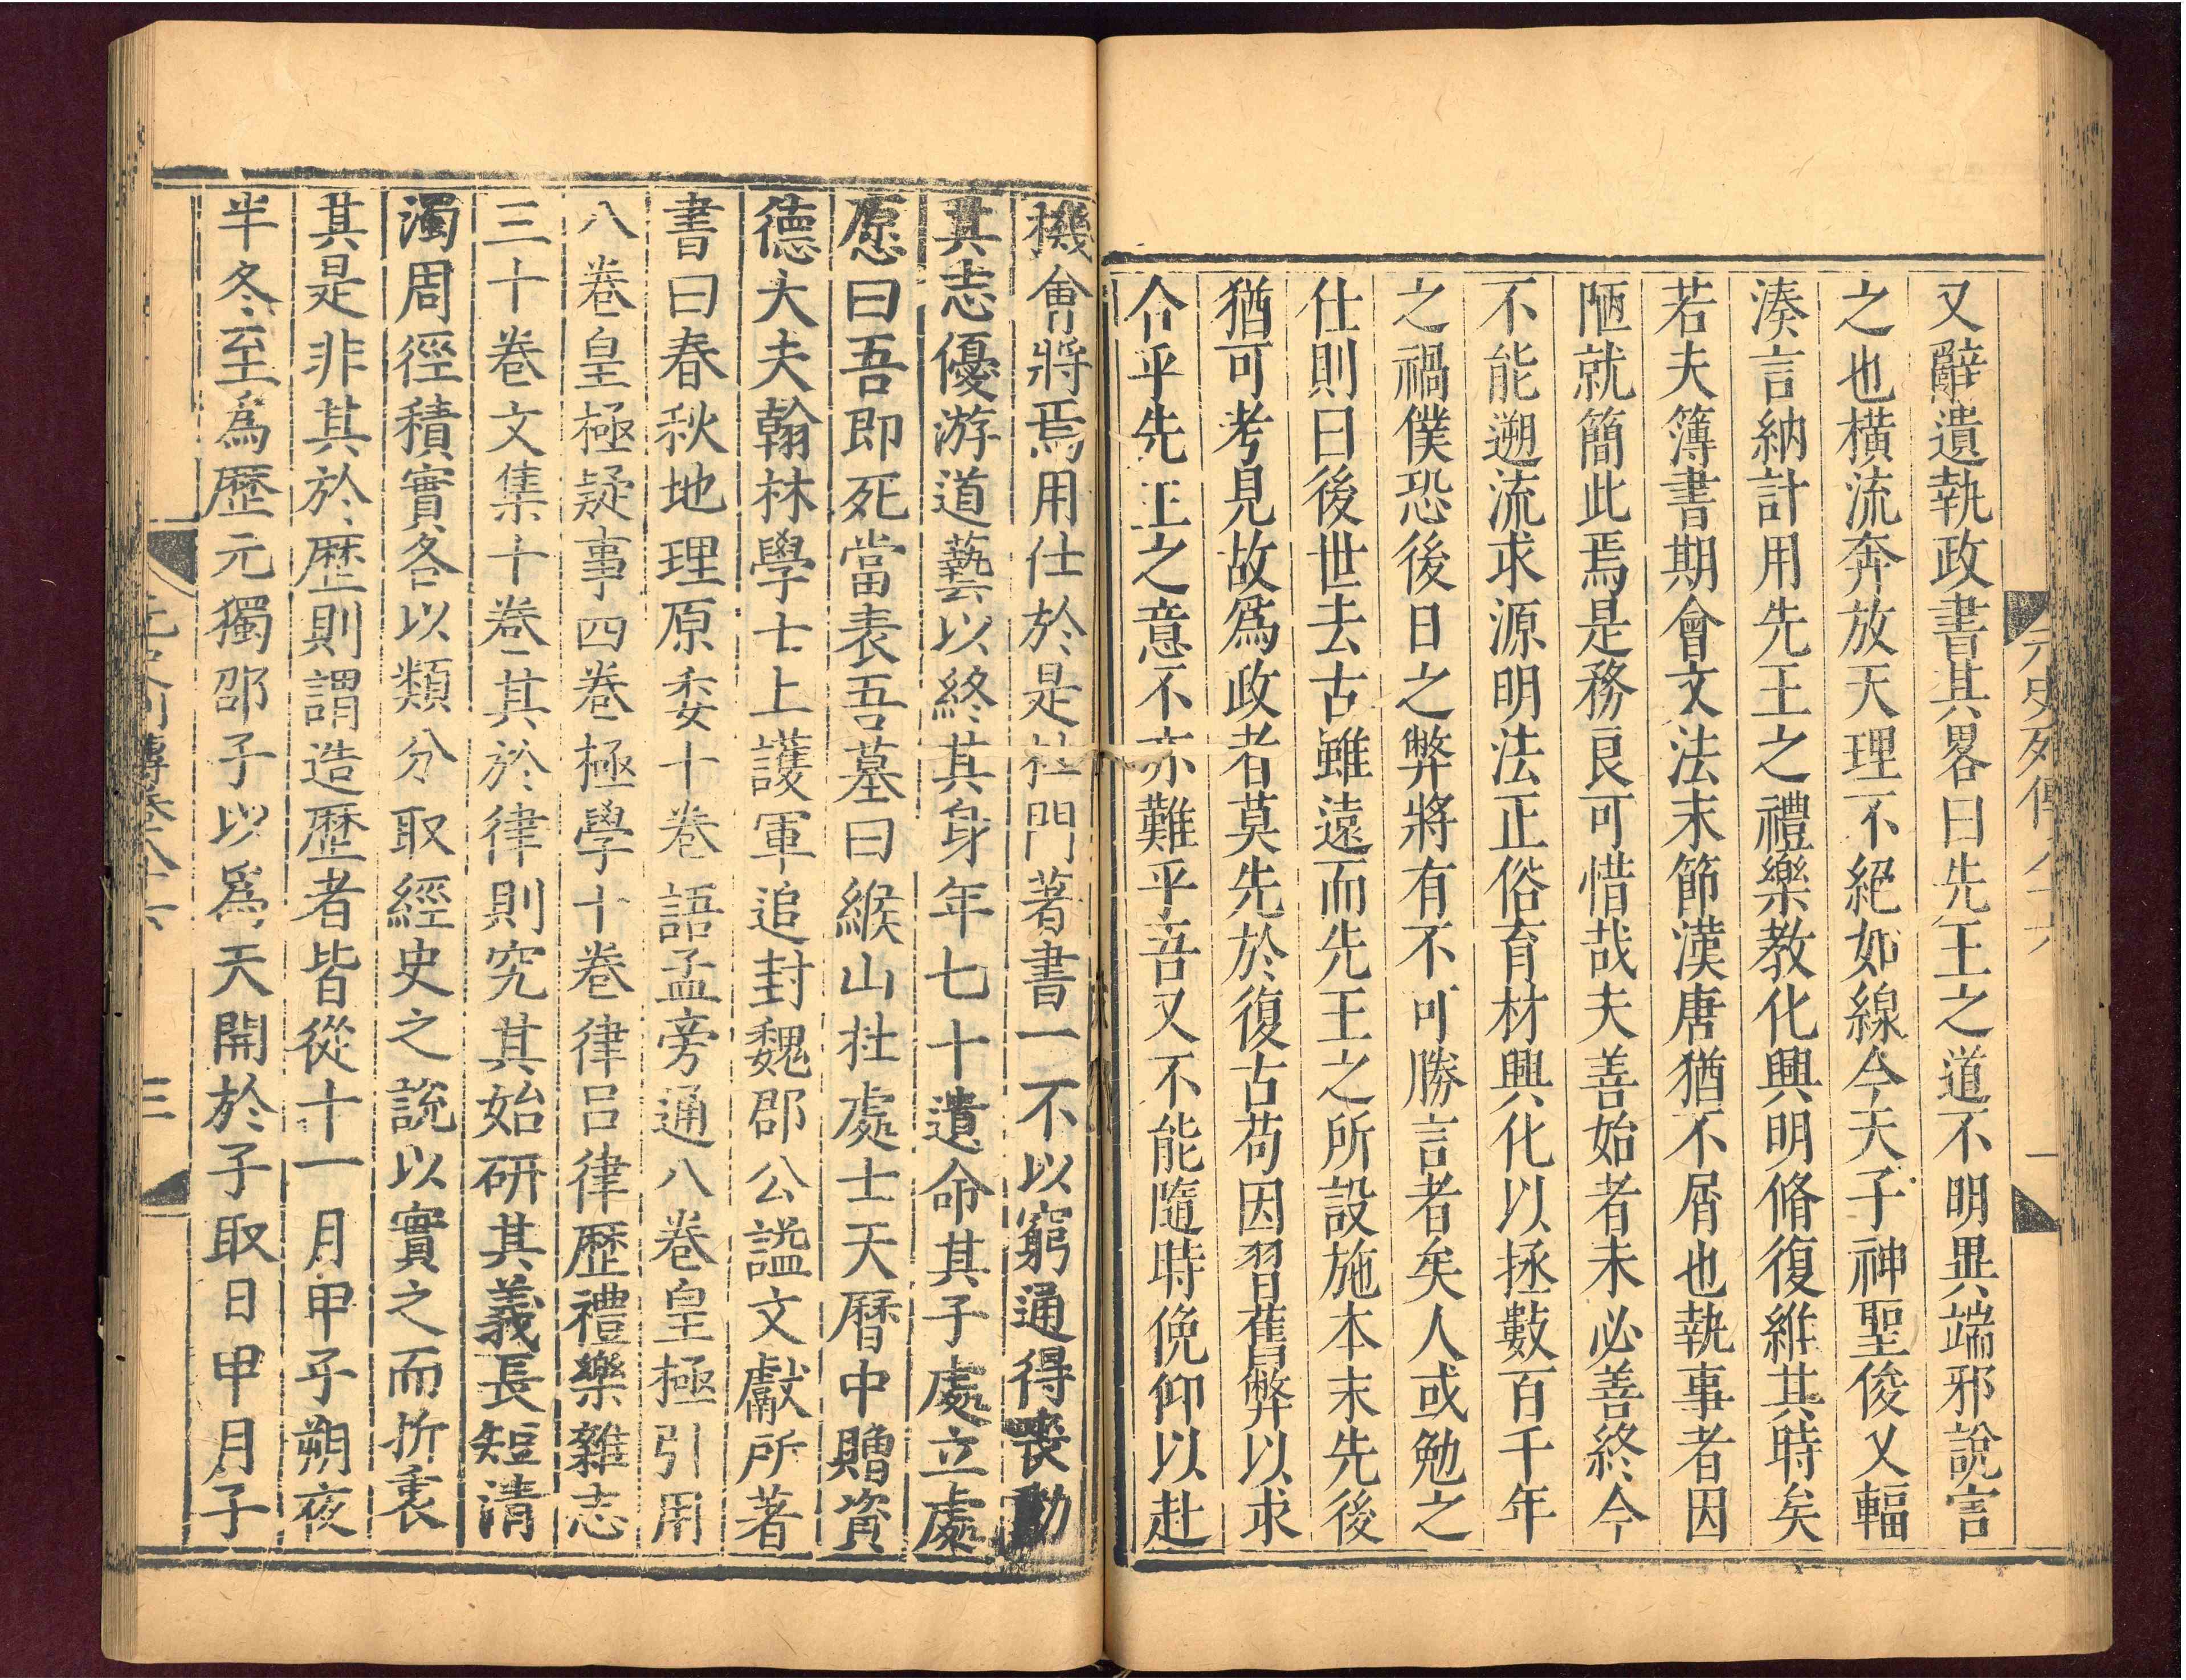 元史列傳八十六
又辭遺執政書其畧曰先王之道不明異端邪說害
之也橫流奔放天理不絕如線今天子神聖俊乂輻
湊言納計用先王之禮樂教化興明脩復維其時矣
若夫簿書期會文法末節漢唐猶不屑也執事者因
陋就簡此焉是務良可惜哉夫善始者未必善終今
不能遡流求源明法正俗育材興化以拯數百千年
之禍僕恐後日之弊將有不可勝言者矣人或勉之
仕則曰後世去古雖遠而先王之所設施本末先後
猶可考見故為政者莫先於復古苟因習舊弊以求
合乎先王之意不亦難乎吾又不能隨時俛仰以赴
機會將焉用仕於是杜門著書一不以窮通得喪動
其志優游道藝以終其身年七十遺命其子處立處
愿曰吾即死當表吾墓曰緱山杜處士天曆中贈資
德大夫翰林學士上護軍追封魏郡公謚文獻所著
書曰春秋地理原委十卷語孟旁通八卷皇極引用
八卷皇極疑事四卷極學十卷律呂律歷禮樂雜志
三十卷文集十卷其於律則究其始研其義長短清
濁周徑積實各以類分取經史之說以實之而折衷
其是非其於歷則謂造歷者皆從十一月甲子朔夜
半冬至為歷元獨邵子以為天開於子取日甲月子
元史列傳卷八十六
三